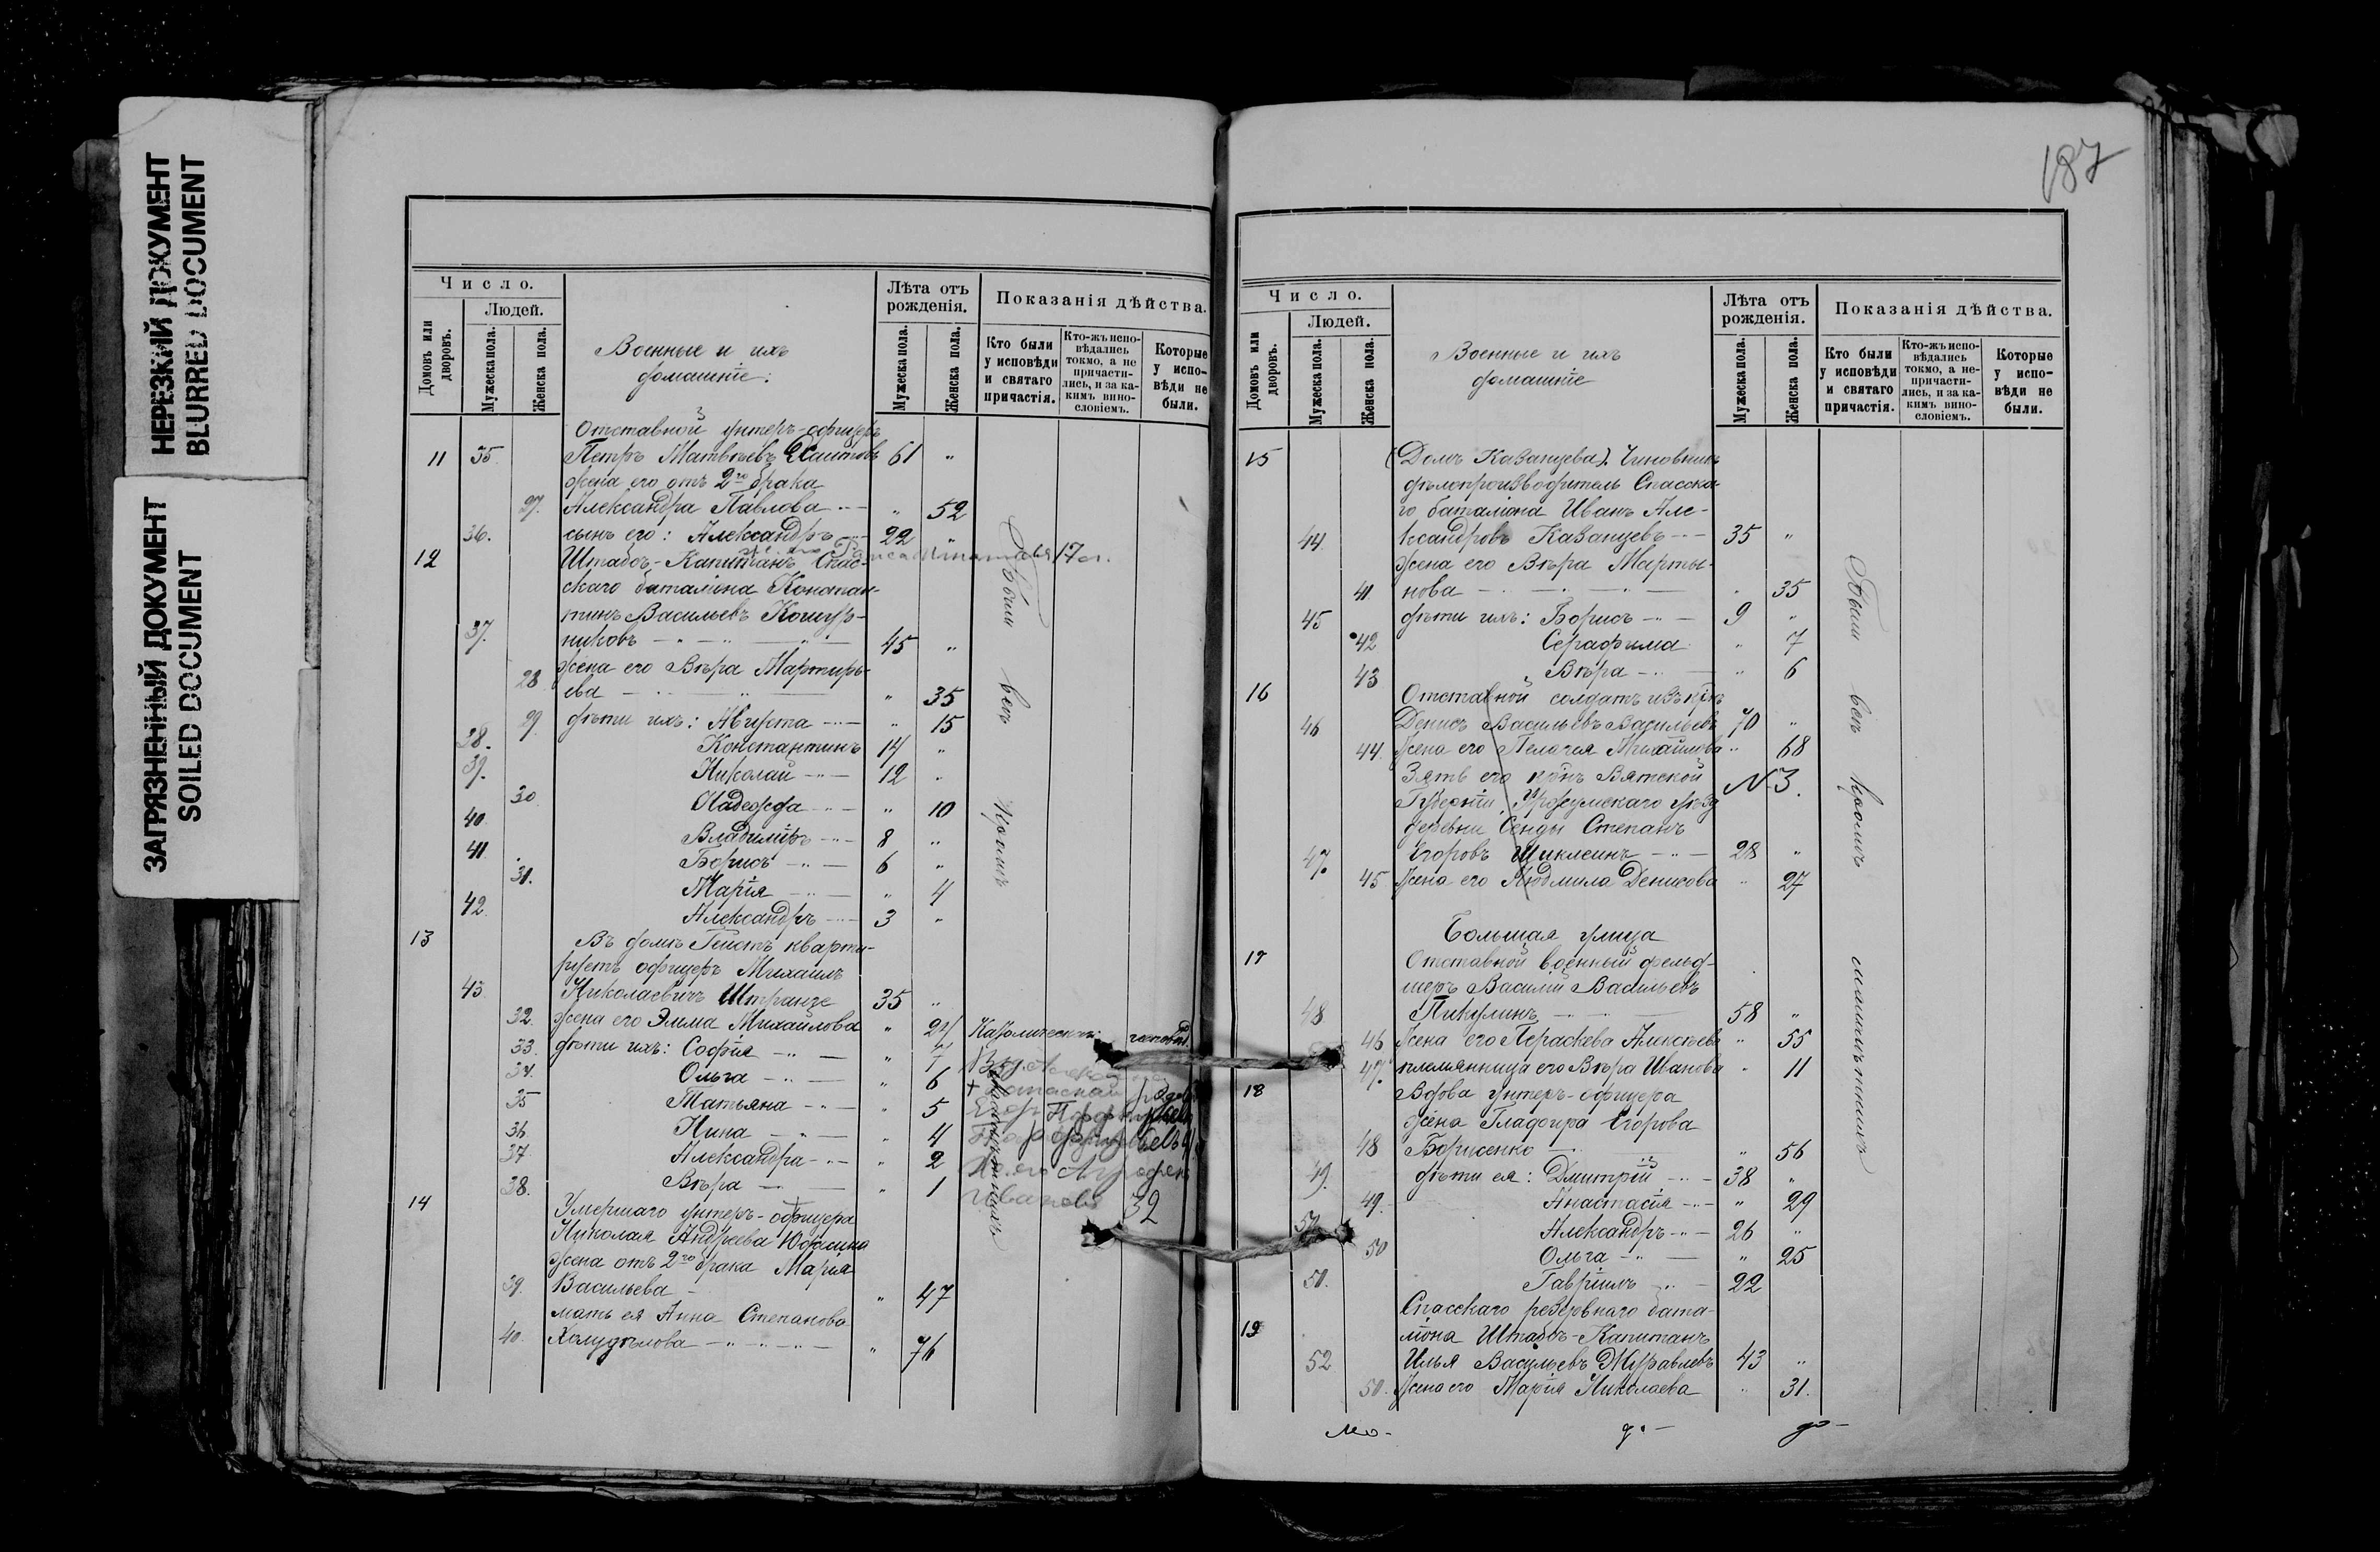 НЕРЕЗКИЙ ДОКУМЕНТ
BLURRED DOCUMENT
ЗАГРЯЗНЕННЫЙ ДОКУМЕНТ
SOILED DOCUMENT
Число.
Людей.
Домовъ или дворовъ.
Мужеска пола.
Женска пола.
Военные и ихъ
домашніе:
Лѣта отъ рожденія.
Мужеска пола.
Женска пола.
Показанія дѣйства.
Кто были у исповѣди и святаго причастія.
Кто-жъ исповѣдались токмо, а не причастились, и за какимъ винословіемъ.
Которые у исповѣди не были.
Отставной унтеръ-офицеръ
11 35 Петръ Матвѣевъ 61 "
жена его отъ 2го брака
27. Александра Павлова " 52
36. сынъ его: Александръ 22 "
17 л.
12 Штабсъ-Капитанъ Спас-
скаго баталіона Констан-
тинъ Васильевъ
37. никовъ 45 "
жена его Вѣра Мартирь-
28 ева " 35
29. дѣти ихъ: Августа " 15
38. Константинъ 14 "
39. Николай 12 "
30 Надежда " 10
40 Владиміръ 8 "
41 Борисъ 6 "
31. Марія " 4
42 Александръ 3 "
13 Въ домѣ кварти-
руетъ офицеръ Михаилъ
43 Николаевичъ Штранге 35 "
32. жена его Эмма Михайлова " 24
33. дѣти ихъ: Софія " 7
34. Ольга " 6
35 Татьяна " 5
36 Нина " 4
37 Александра " 2
38. Вѣра " 1
32
14 Умершаго унтеръ-офицера
Николая Андреева Юфкина
жена отъ 2го брака Марія
39. Васильева " 47
мать ея Анна Степанова
40. " 76
Были всѣ кромѣ малолѣтнихъ
187
Число.
Людей.
Домовъ или дворовъ.
Мужеска пола.
Женска пола.
Военные и ихъ
домашніе
Лѣта отъ рожденія.
Мужеска пола.
Женска пола.
Показанія дѣйства.
Кто были у исповѣди и святаго причастія.
Кто-жъ исповѣдались токмо, а не причастились, и за какимъ винословіемъ.
Которые у исповѣди не были.
15 (Домъ Казанцева). Чиновникъ
дѣлопроизводитель Спасска-
го баталіона Иванъ Але-
44 ксандровъ Казанцевъ 35 "
жена его Вѣра Марты-
41 нова " 35
45 дѣти ихъ: Борисъ 9 "
42 Серафима " 7
43 Вѣра " 6
16 Отставной солдатъ изъ крнъ
46 Денисъ Васильевъ Васильевъ 70 "
44. Жена его Пелагея Михайлова " 68
Зять его крнъ Вятской N 3.
Губерніи, Уржумскаго уѣзд
деревни Сенды Степанъ
47. Егоровъ Шиклеинъ 28 "
45 Жена его Людмила Денисова " 27
Большая улица
17 Отставной военный фельд-
шеръ Василій Васильевъ
48 Пикулинъ 58 "
46 Жена его Параскева Алексѣева " 55
47. племянница его Вѣра Иванова " 11
18 Вдова унтеръ-офицера
жена Гладфира Егорова
48 Борисенко " 56
49. дѣти ея: Дмитрій 38 "
49. Анастасія " 29
50 Александръ 26 "
50 Ольга " 25
51. Гавріилъ 22
Спасскаго резервнаго бата-
19 ліона Штабсъ-Капитанъ
52 Илья Васильевъ Журавлевъ 43 "
50. Жена его Марія Николаева " 31.
Были всѣ кромѣ малолѣтнихъ